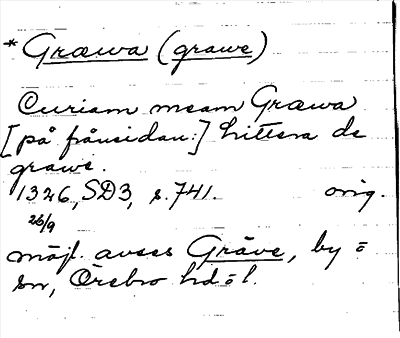 * Græwa (grawe)
Curiam meam Græwa
[på frånsidan:] littera de
grawe.
1326, SD3, s. 741. orig.
26/9
möjl. avses Gräve, by ō
sn, Örebro hd ō l.